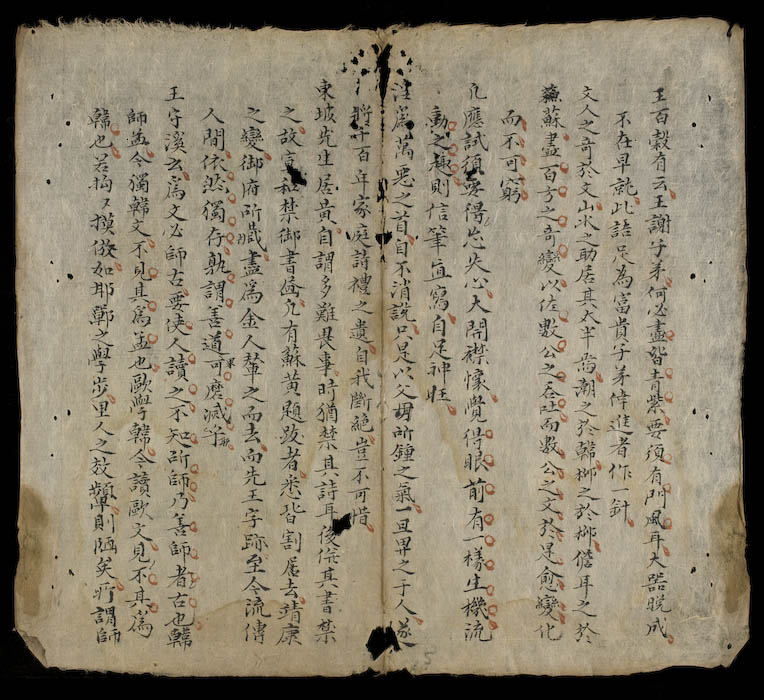 王百穀有云王謝子弟何必盡皆青紫要須有門風耳大器晚成
不在早就此語足為富貴子弟倖進者作一針
文人之奇於文山水之助居其太半爲潮之於韓柳之於柳儋耳之於
蘇蘇盡百方之奇變以佐數公之吞吐而數公之文於是愈變化
而不可窮
凡應試須要得忘失心大開襟懷覺得眼前有一樣生機流
動之趣則信筆直寫自足神旺
淫爲萬惡之首自不消說只是以父母所鍾之氣一旦畀之于人遂
將千百年家庭詩禮之遺自我斷絕豈不可惜
東坡先生居黃自謂多難畏事時猶禁其詩耳後倂其書禁
之故宣和禁御書畫凡有蘇黃題跋者悉皆割居去靖康
之變御府所藏盡爲金人輦之而去而先王字跡至今流傳
人間依然獨存孰謂善道可磨滅乎
王守溪云爲文必師古要使人讀之不知所師乃善師者古也韓
師孟今獨韓文不見其爲孟也歐學韓今讀歐文見不其爲
韓也若拘々摸倣如邯鄲之學步里人之效顰則陋矣所謂師